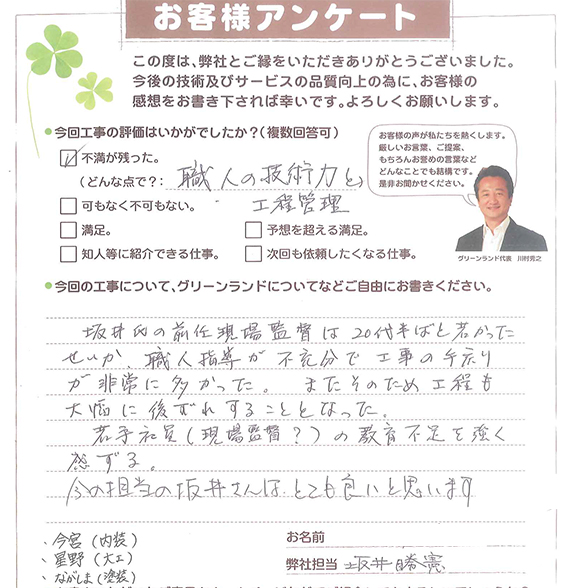 お客様アンケート
この度は、弊社とご縁をいただきありがとうございました。
今後の技術及びサービスの品質向上の為に、お客様の
感想をお書き下されば幸いです。よろしくお願いします。
●今回工事の評価はいかがでしたか?(複数回答可)
不満が残った。
(どんな点で?: 職人の技術力と、
工程管理
可もなく不可もない。
満足。
予想を超える満足。
知人等に紹介できる仕事。
次回も依頼したくなる仕事。
お客様の声が私たちを熱くします。
厳しいお言葉、ご提案、
もちろんお誉めの言葉など
どんなことでも結構です。
是非お聞かせください。
グリーンランド代表 川村秀之
●今回の工事について、グリーンランドについてなどご自由にお書きください。
坂井氏の前任現場監督は20代半ばと若かった
せいか、職人指導が不充分で工事の手戻り
が非常に多かった。またそのため工程も
大幅に後ずれすることとなった。
若手社員(現場監督?)の教育不足を強く
感ずる。
今の担当の坂井さんは、とても良いと思います
・今宮(内装)
・星野(大工)
・ながしま(塗装)
お名前
弊社担当 坂井勝憲